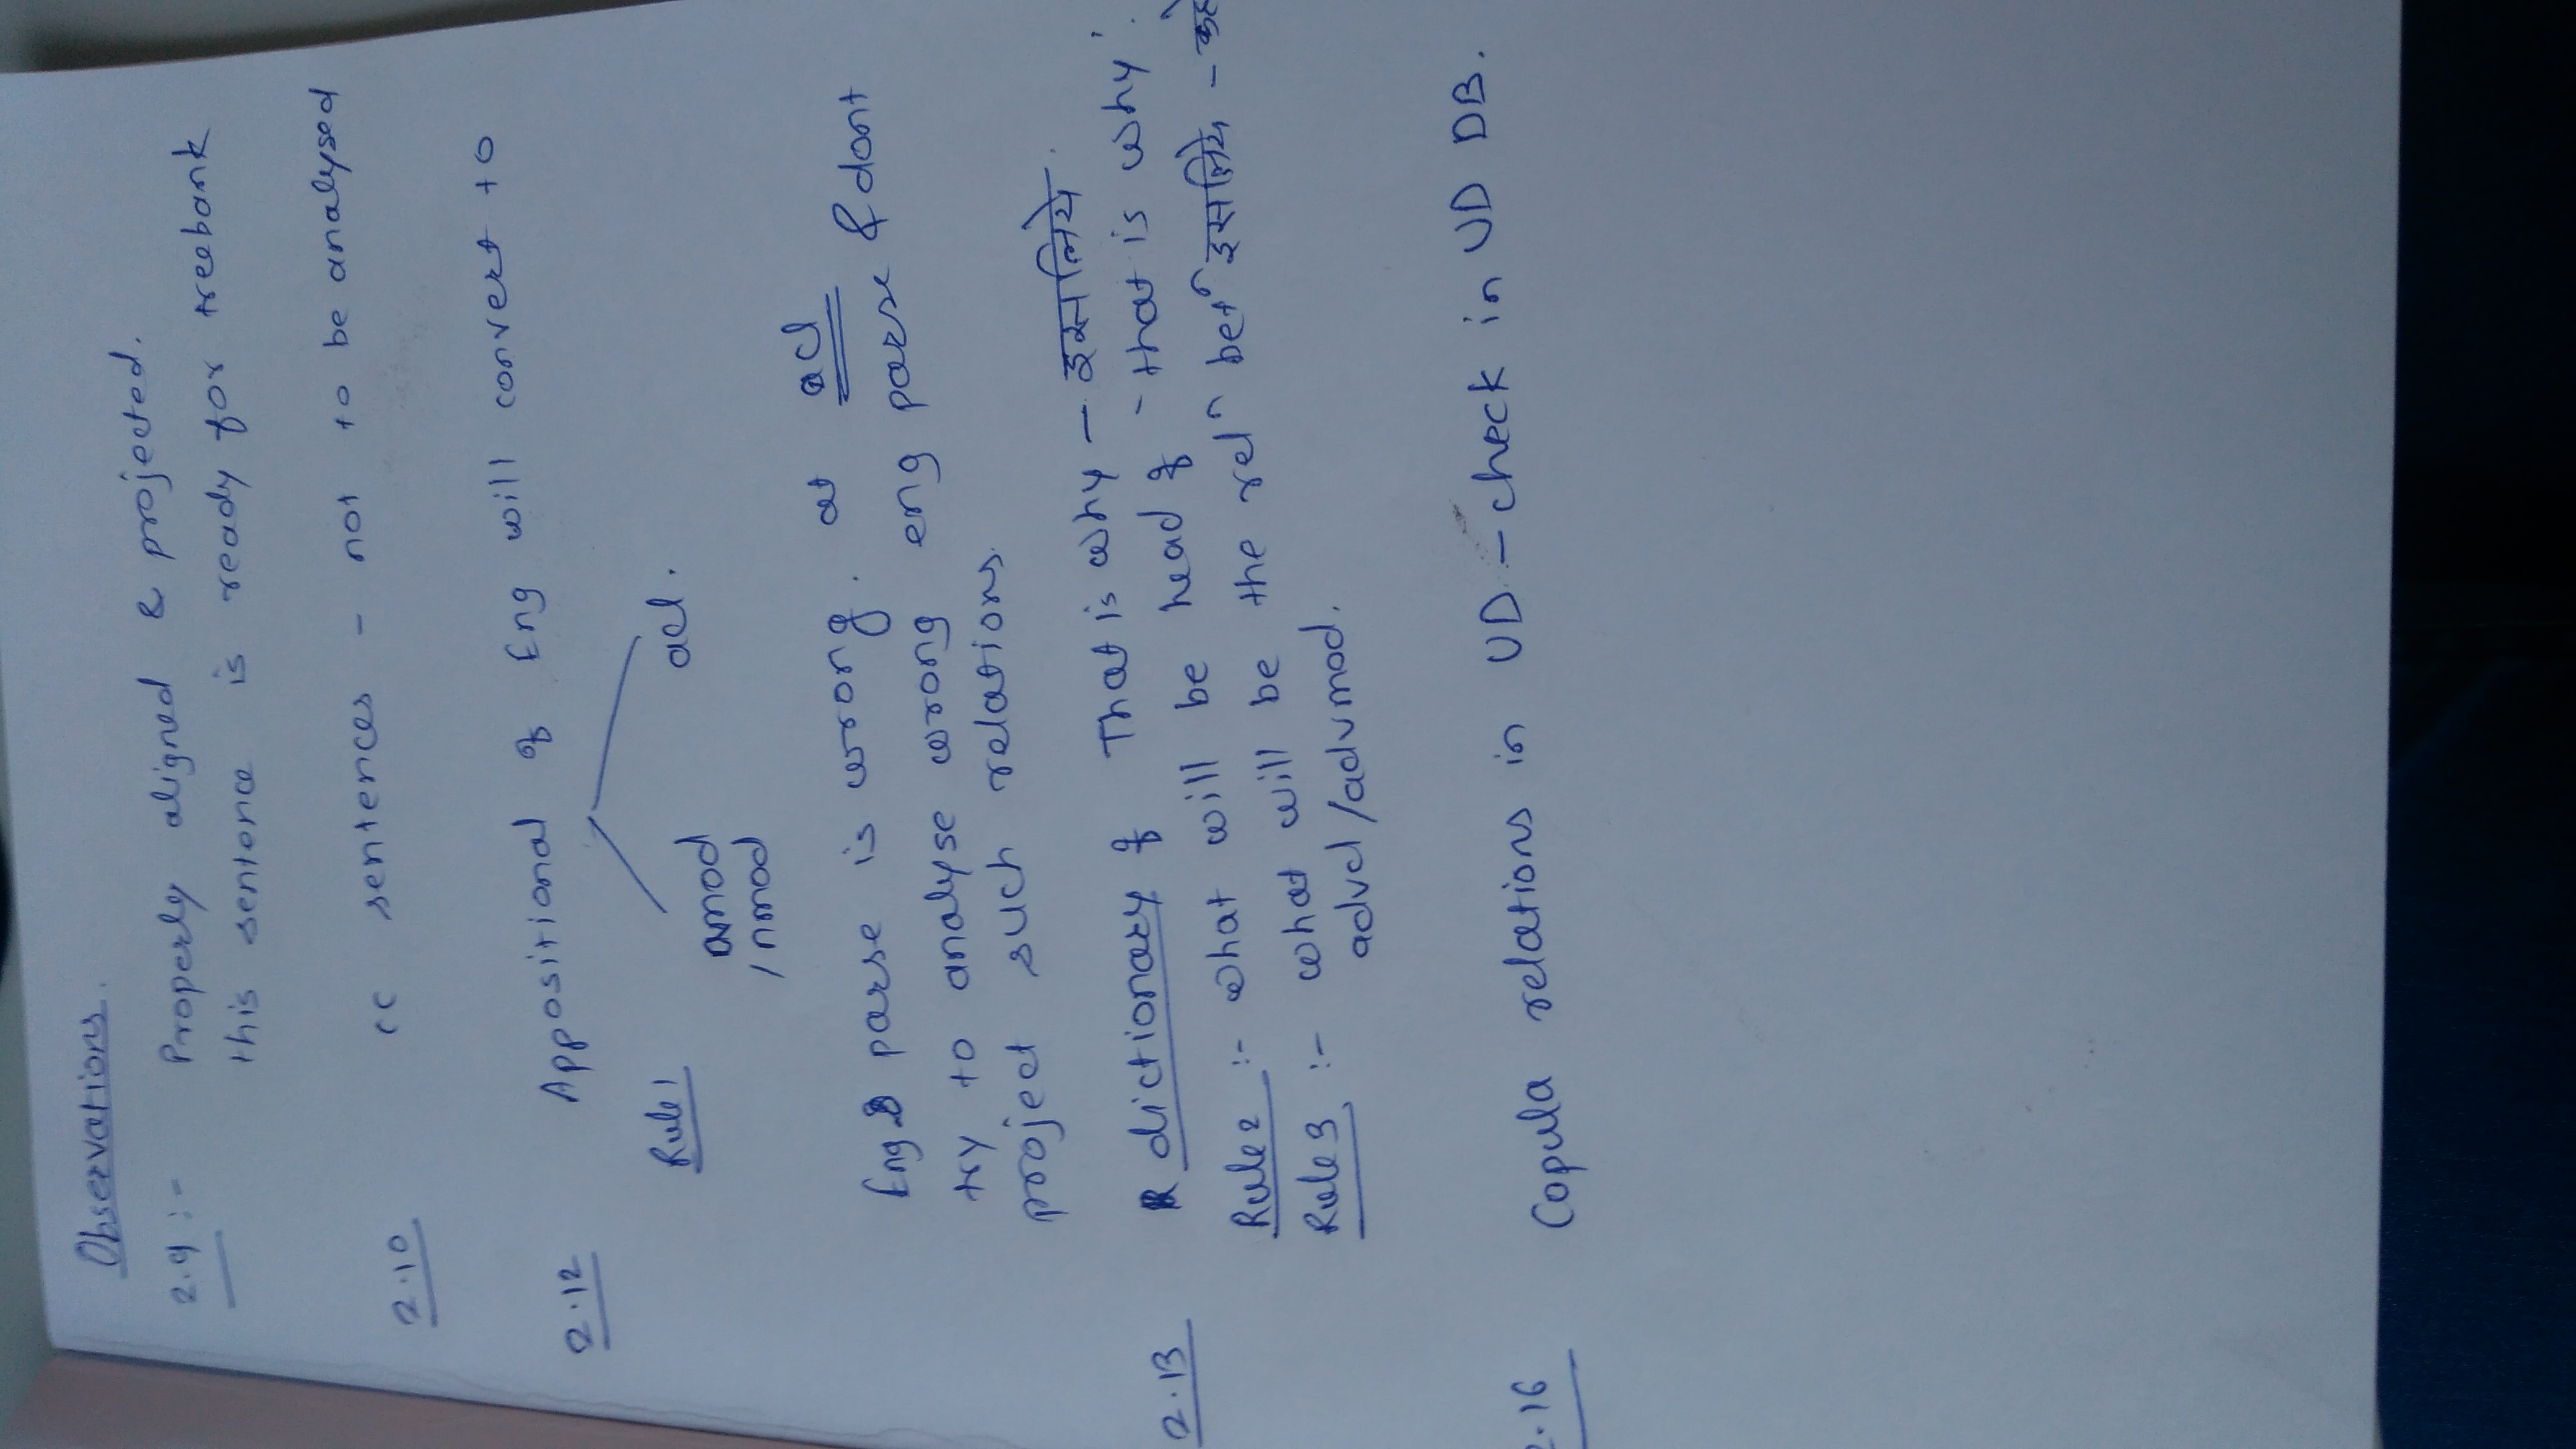 Observations.
2.9 :- Properly aligned & projected.
this sentence is ready for treebank
2.10 cc sentences - not to be analysed
2.12 Appositional of Eng will convert to
Rule 1 amod / nmod acl.
Eng parse is wrong. at acl
try to analyse wrong eng parse & dont
project such relations.
2.13 dictionary of That is why - इसलिये.
Rule 2 :- what will be head of - 'that is why'.
Rule 3 :- what will be the relⁿ betⁿ इसलिये -
advcl/advmod.
2.16 Copula relations in UD - check in UD DB.